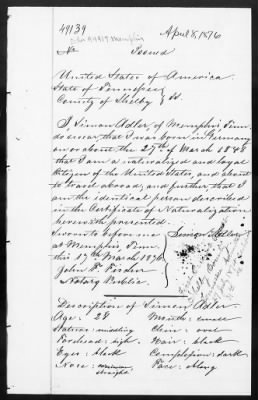 49139
April 8, 1876
No Issued
United States of America
State of Tennessee
County of Shelby } SS.
I Simon Adler of Memphis Tenn.
do swear that I was born in Germany
on or about the 27th of March 1848
that I am a naturalized and loyal
Citizen of the United States, and about
to travel abroad; and further that I
am the identical person described
in the Certificate of Naturalization
herewith presented.
Sworn to before me } Simon Adler
at Memphis, Tenn
this 17th March 1876
John
Notary Public.
Description of Simon Adler
Age: 28 Mouth: small
Stature: middling Chin: oval
Forehead: high Hair: black
Eyes: black Complexion: dark
Nose: common Face: oblong
straight